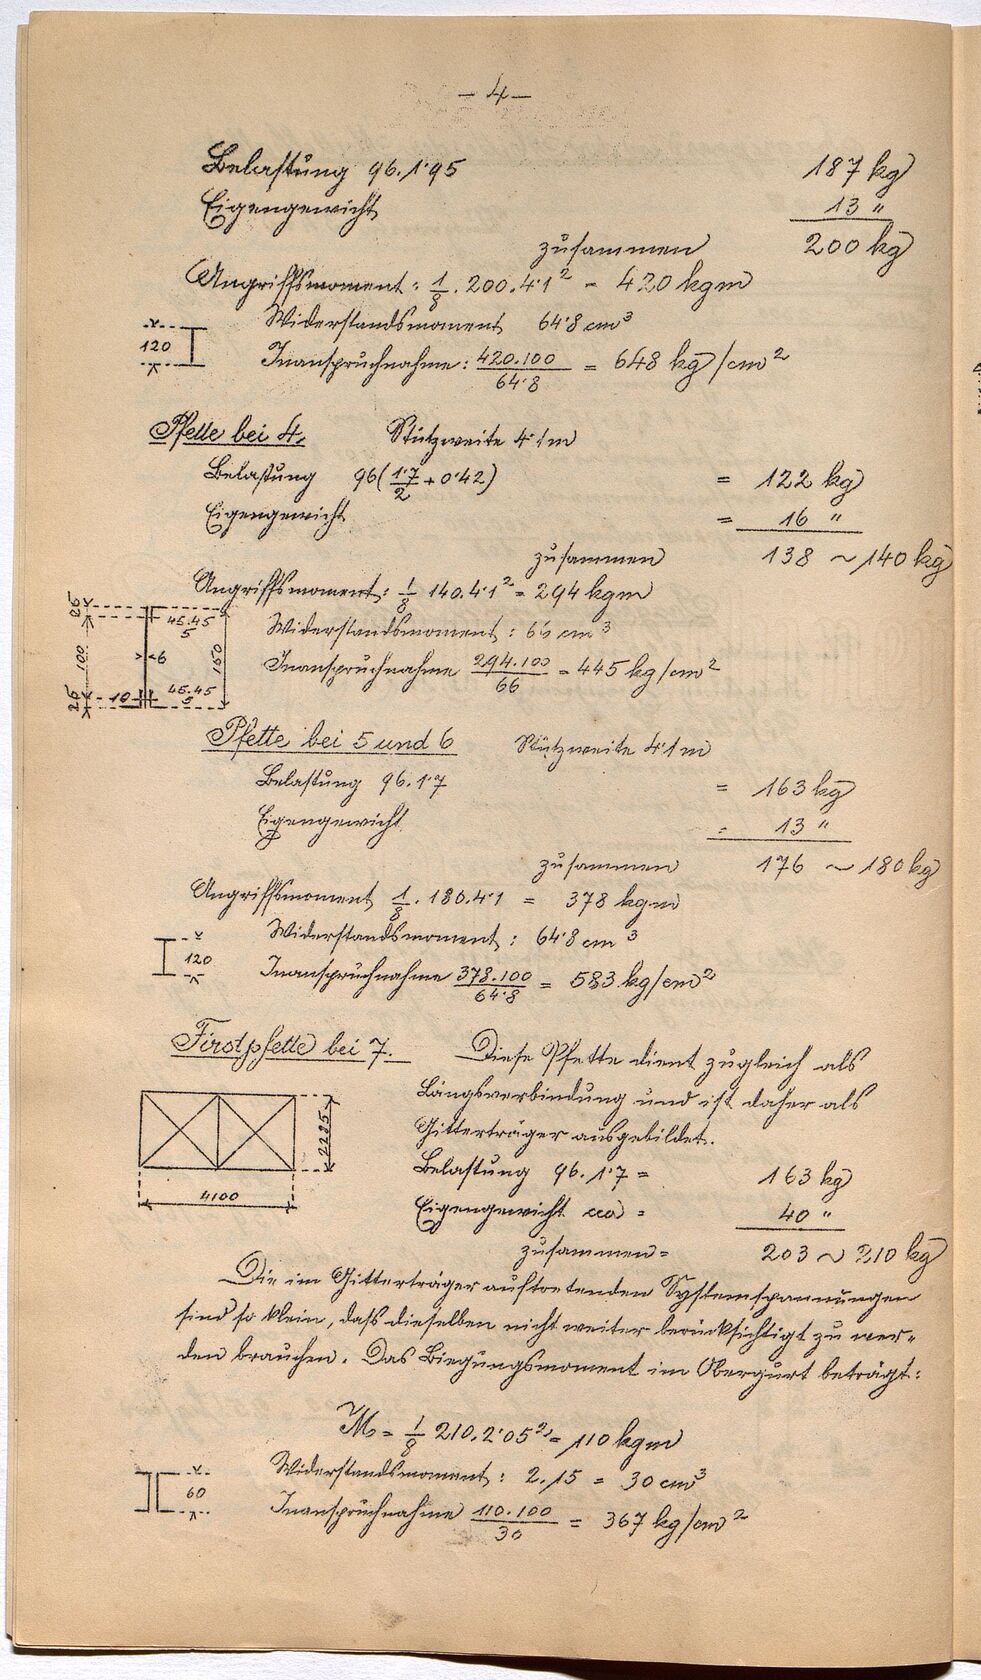 – 4 –
Belastung 96.1·95 187 kg
Eigengewicht 13 "
zusammen 200 kg
Angriffsmoment: 1/8 . 200.4·1² = 420 kgm
Widerstandsmoment 64·8 cm³
120
Inanspruchnahme: 420.100/64·8 = 648 kg/cm²
Pfette bei 4. Stützweite 4·1 m
Belastung 96(1·7/2 + 0·42) = 122 kg
Eigengewicht = 16 "
zusammen 138 ~ 140 kg
Angriffsmoment: 1/8 140.4·1² = 294 kgm
25 100 25 45.45/5 6 150 10 45.45/5
Widerstandsmoment: 66 cm³
Inanspruchnahme 294.100/66 = 445 kg/cm²
Pfette bei 5 und 6 Stützweite 4·1 m
Belastung 96.1·7 = 163 kg
Eigengewicht = 13 "
zusammen 176 ~ 180 kg
Angriffsmoment 1/8 . 180.4·1 = 378 kgm
Widerstandsmoment: 64·8 cm³
120
Inanspruchnahme 378.100/64·8 = 583 kg/cm²
Firstpfette bei 7. Diese Pfette dient zugleich als
Längsverbindung und ist daher als
Gitterträger ausgebildet.
2225
4100
Belastung 96.1·7 = 163 kg
Eigengewicht cca = 40 "
zusammen = 203 ~ 210 kg
Die im Gitterträger auftretenden Systemspannungen
sind so klein, dass dieselben nicht weiter berücksichtigt zu wer=
den brauchen. Das Biegungsmoment im Obergurt beträgt:
M = 1/8 210.2·05² = 110 kgm
Widerstandsmoment: 2.15 = 30 cm³
60
Inanspruchnahme 110.100/30 = 367 kg/cm²